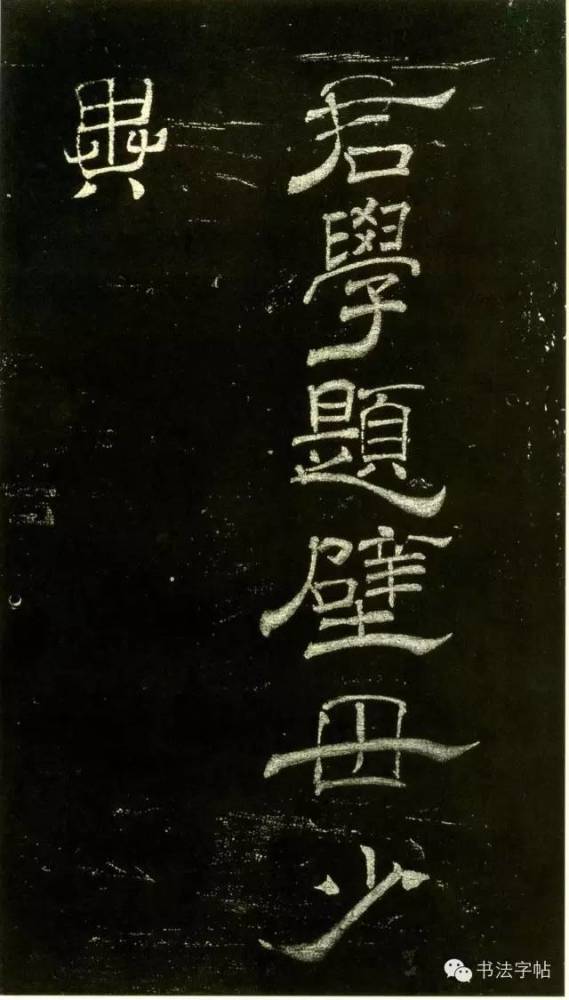 君學題壁毋少
书法字帖